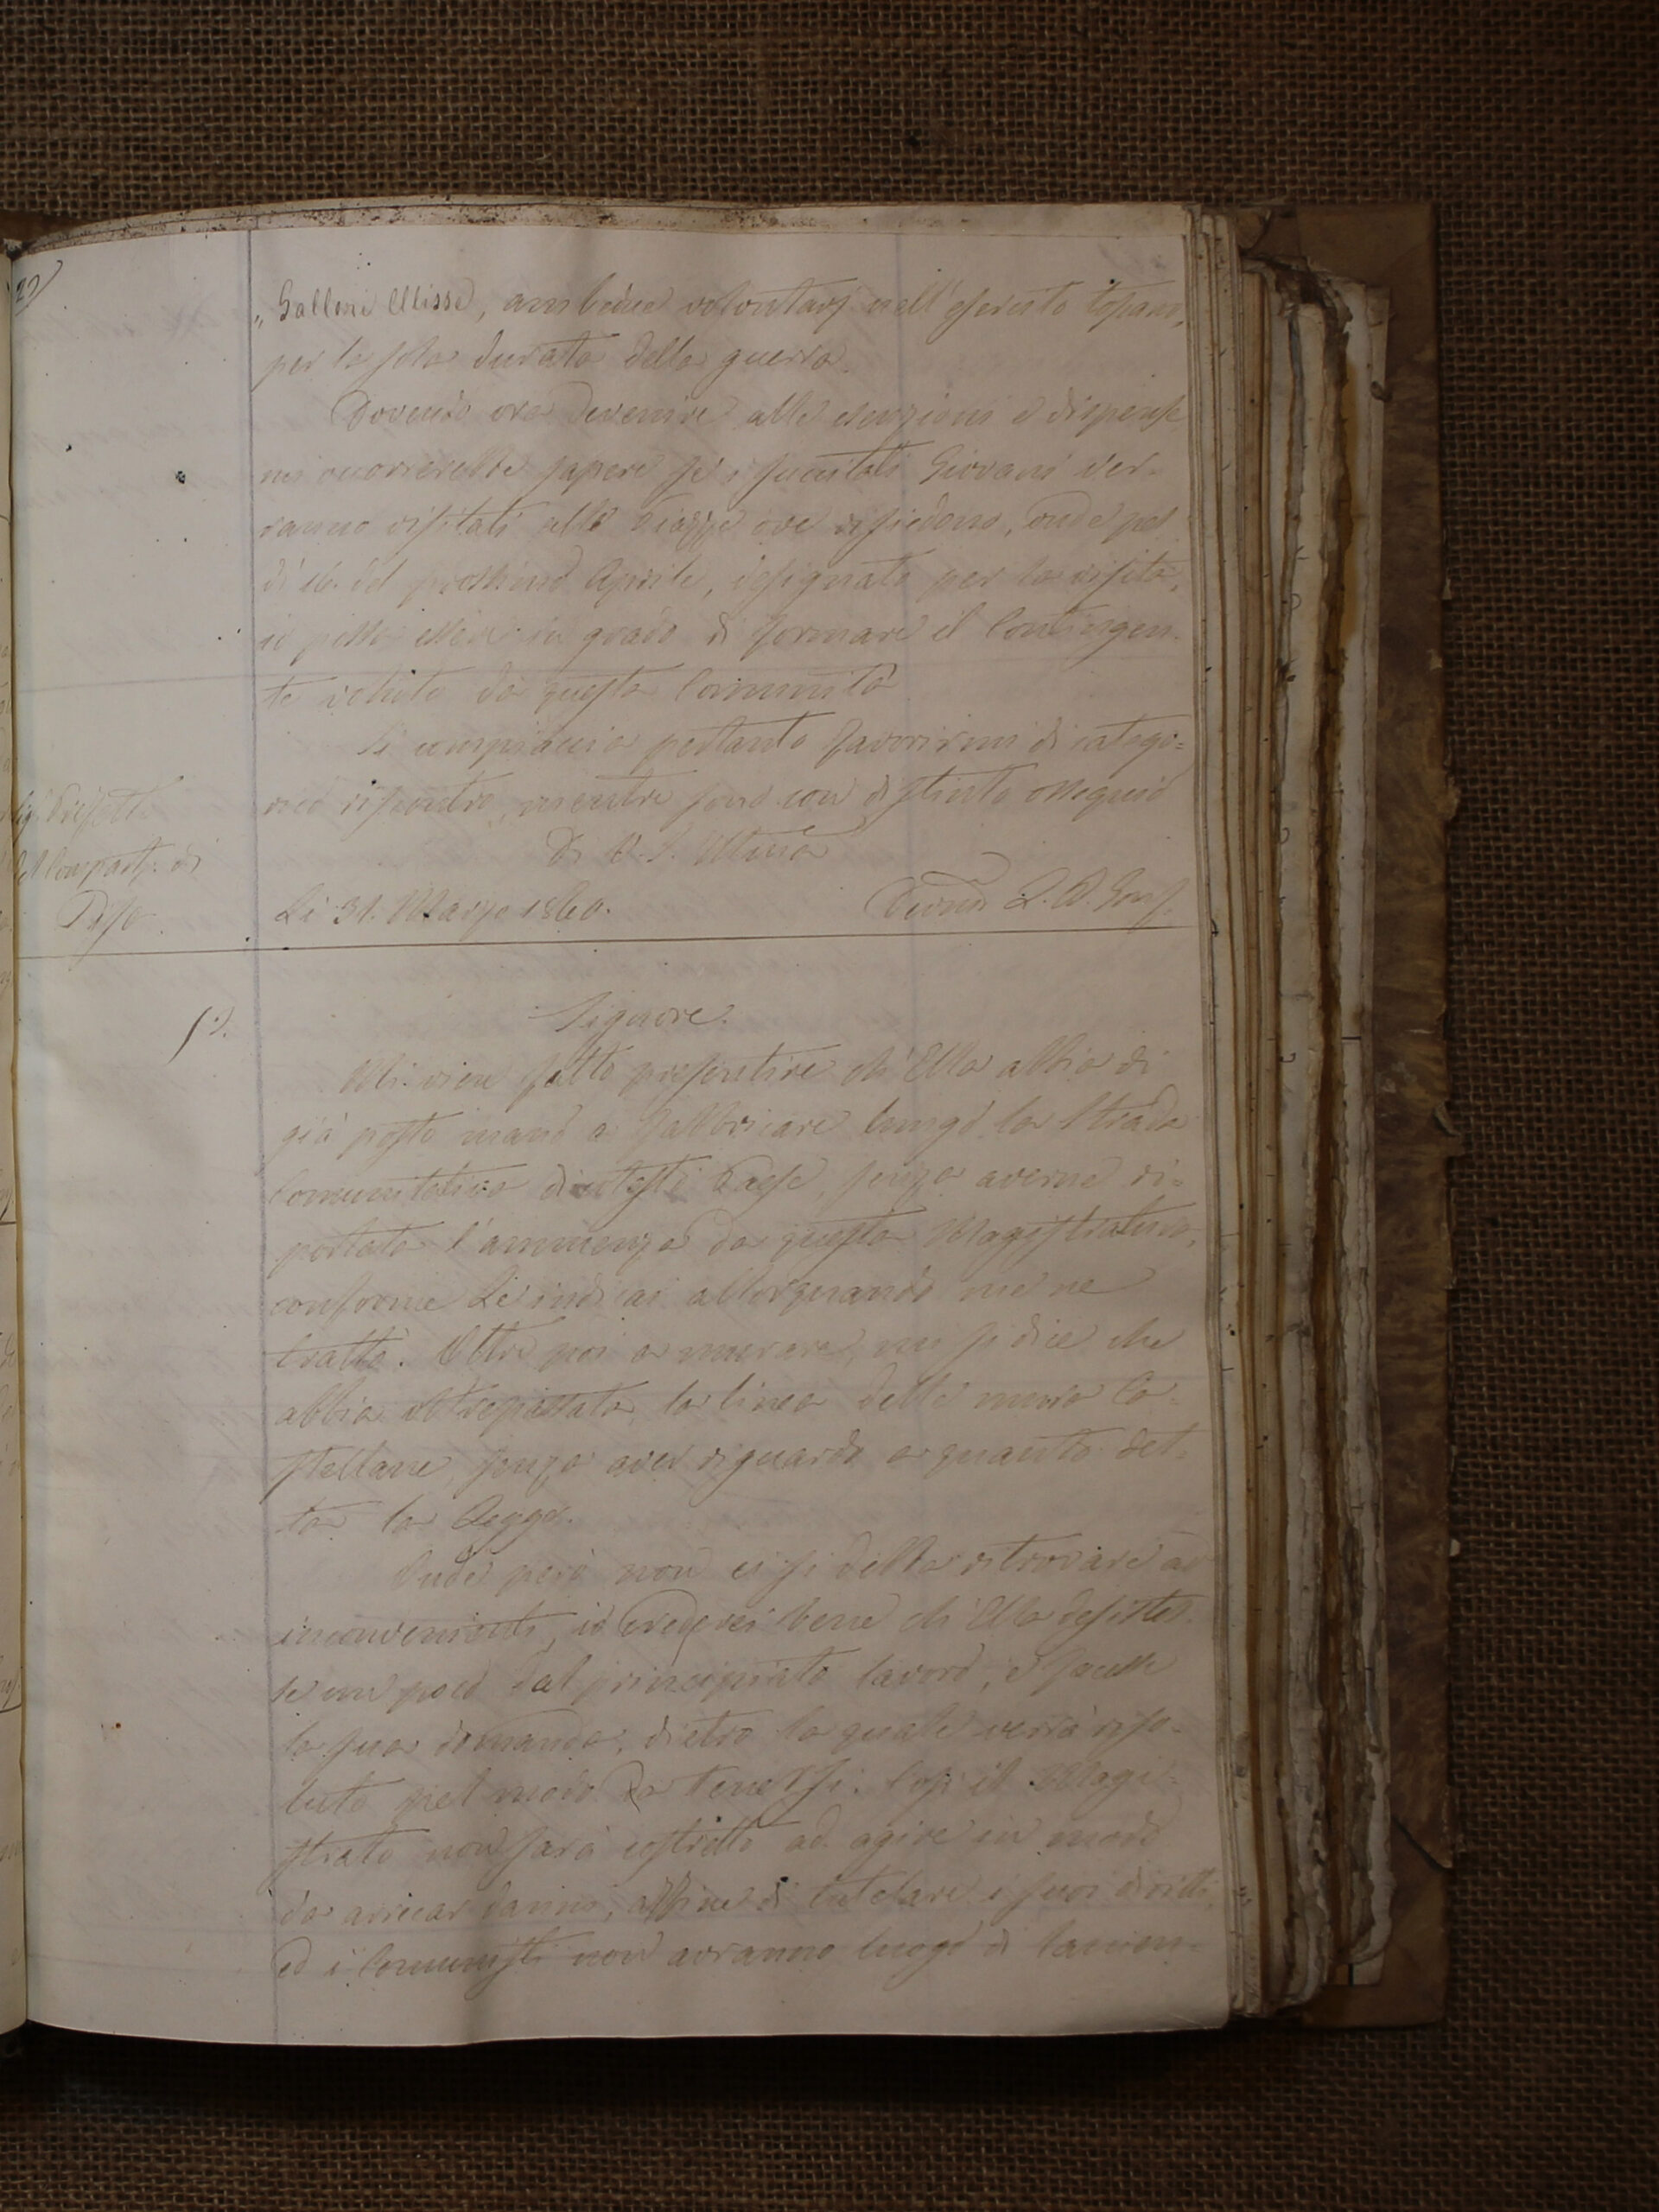 22
„ Galloni Ulisse, ambedue volontarj nell'esercito toscano,
per la sola durata della guerra.
Dovendo ora devenire alle esenzioni e dispense
mi occorrerebbe sapere se i succitati Giovani ver-
ranno visitati alle Piazze ove risiedono, onde pel
dì 16. del prossimo Aprile, designato per la visita,
io possa essere in grado di formare il Contingen-
te voluto da questa Comunità
Si compiaccia pertanto favorirmi di catego-
rico riscontro, mentre sono con distinto ossequio
Di V. S. Illma
Sig. Prefetto
del Compart. di
Pisa
Li 31. Marzo 1860.
Devmo
Signore.
Mi vien fatto presentire ch'Ella abbia di
già posto mano a fabbricare lungo la Strada
Comunitativa di cotesto Paese, senza averne ri-
portata l'annuenza da questa Magistratura,
conforme Le indicai allorquando me ne
trattò. Oltre poi a murare, mi si dice che
abbia oltrepassata la linea delle mura Ca-
stellane, senza aver riguardo a quanto det-
ta la Legge.
Onde però non ci si debba ritrovare a
inconvenienti, io crederei bene ch'Ella desistes-
se un poco dal principiato lavoro, e facesse
la sua domanda, dietro la quale verrà riso-
luto pel modo da tenersi. Così il Magi-
strato non sarà costretto ad agire in modo
da arrecar danni, affine di tutelare i suoi diritti,
ed i Comunisti non avranno luogo di lamen-